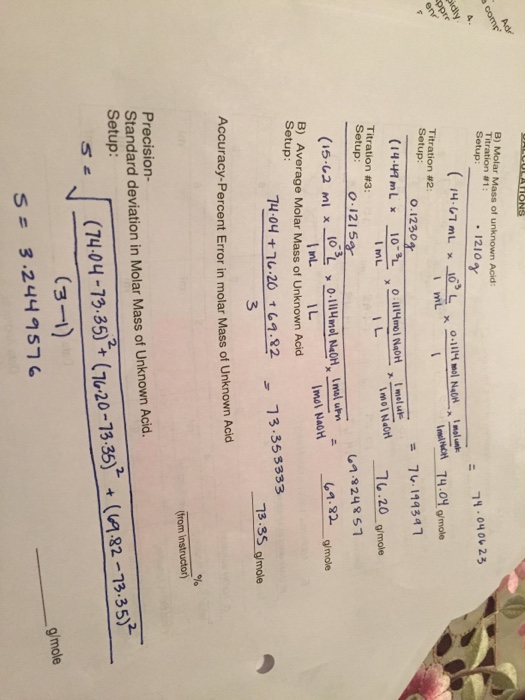 CALCULATIONS
B) Molar Mass of unknown Acid:
Titration #1:
Setup: .1210g
(14.67 mL x 10^-3 L / 1 mL x 0.1114 mol NaOH / 1 x 1 mol unk / 1 mol NaOH = 74.040623
74.04 g/mole
Titration #2:
Setup: 0.1230g
(14.49 mL x 10^-3 L / 1 mL x 0.1114 mol NaOH / 1 L x 1 mol unk / 1 mol NaOH = 76.199397
76.20 g/mole
Titration #3:
Setup: 0.1215g
(15.62 ml x 10^-3 L / 1 mL x 0.1114 mol NaOH / 1 L x 1 mol ukn / 1 mol NaOH = 69.824857
69.82 g/mole
B) Average Molar Mass of Unknown Acid
Setup:
74.04 + 76.20 + 69.82 / 3 = 73.353333
73.35 g/mole
Accuracy-Percent Error in molar Mass of Unknown Acid
%
(from instructor)
Precision-
Standard deviation in Molar Mass of Unknown Acid.
Setup:
S = √ (74.04-73.35)² + (76.20-73.35)² + (69.82-73.35)² / (3-1)
S = 3.2449576
g/mole